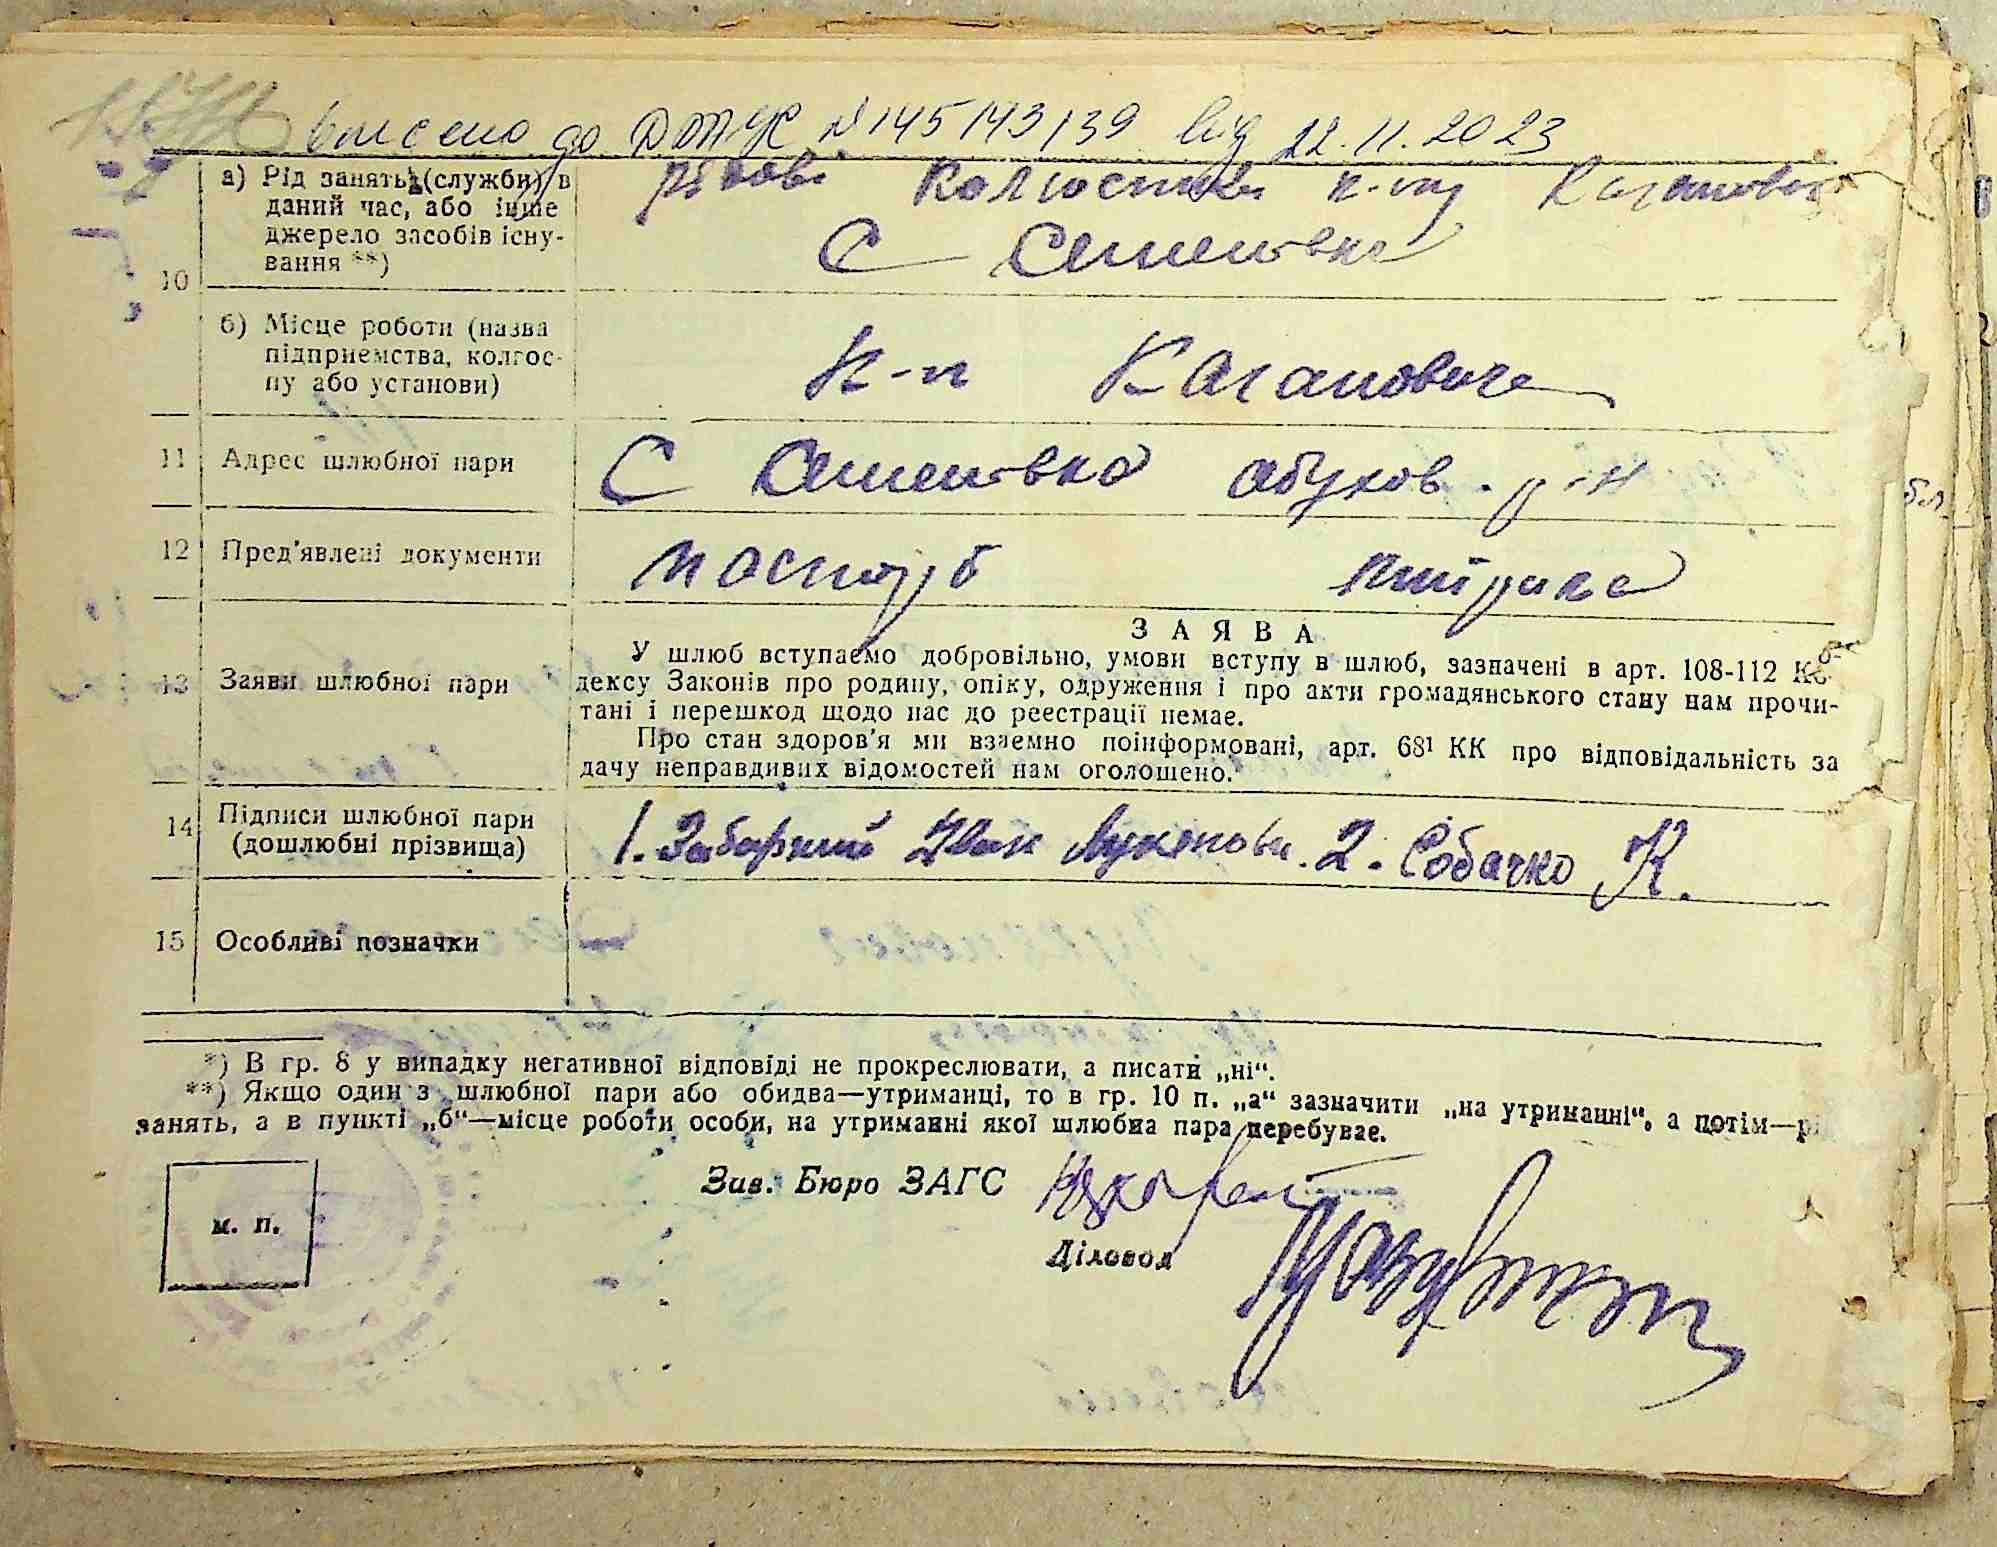 внесено до ДРАЦС №145143139 від 22.11.2023
10
а) Рід занять (службн) в даний час, або інше джерело засобів існування **)
рядові колгоспники к-пу Кагановича
С
б) Місце роботи (назва підприемства, колгоспу або установи)
к-п Кагановича
11
Адрес шлюбної пари
С обухов. р-н
12
Пред'явлені документи
паспорт метрика
13
Заяви шлюбної пари
ЗАЯВА
У шлюб вступаємо добровільно, умови вступу в шлюб, зазначені в арт. 108-112 Ко-
дексу Законів про родину, опіку, одруження і про акти громадянського стану нам прочи-
тані і перешкод щодо нас до реестрації немае.
Про стан здоров'я ми взаемно поінформовані, арт. 68¹ КК про відповідальність за
дачу неправдивих відомостей нам оголошено.
14
Підписи шлюбної пари
(дошлюбні прізвища)
1. Забарний Іван 2. Собачко К.
15
Особливі позначки
*) В гр. 8 у випадку негативної відповіді не прокреслювати, а писати „ні“.
**) Якщо один з шлюбної пари або обидва—утриманці, то в гр. 10 п. „а“ зазначити „на утриманні“, а потім—рі
занять, а в пункті „б“—місце роботи особи, на утриманні якої шлюбна пара перебувае.
Зав. Бюро ЗАГС
м. п.
Діловод